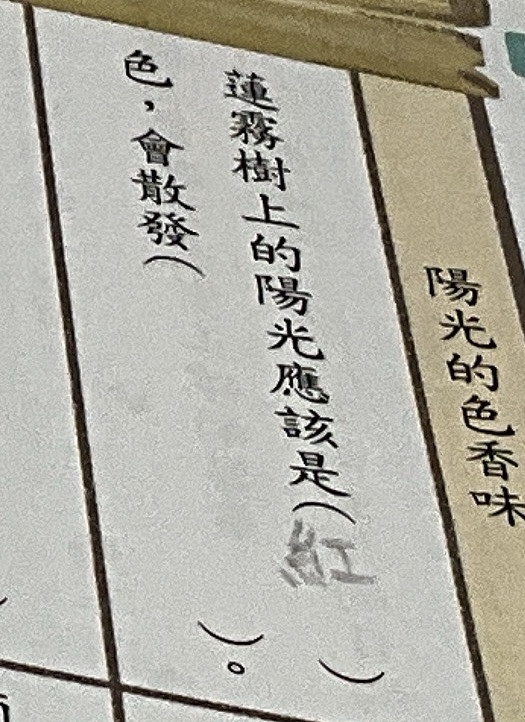 陽光的色香味
蓮霧樹上的陽光應該是(紅)
色,會散發(　　)。